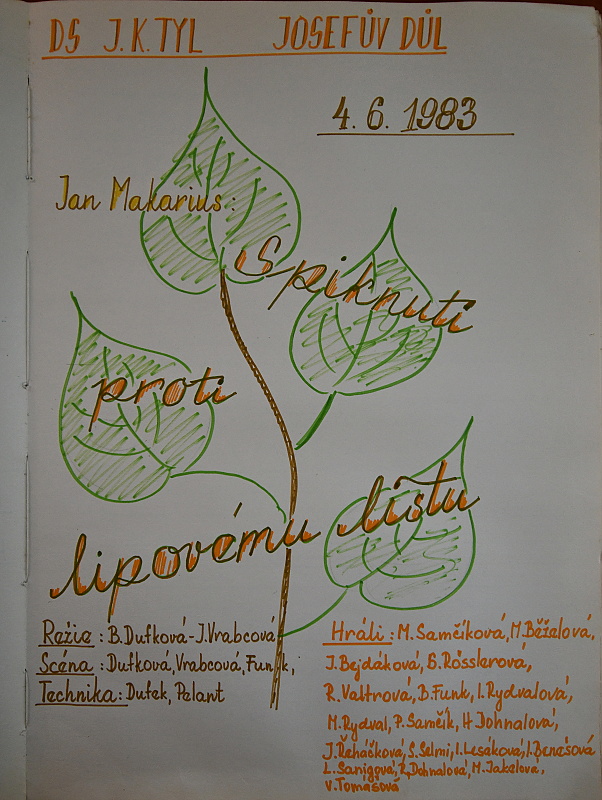 DS J.K.TYL JOSEFŮV DŮL
4. 6. 1983
Jan Makarius:
Spiknutí
proti
lipovému listu
Režie: B.Dufková-J.Vrabcová
Scéna: Dufková, Vrabcová, Funk,
Technika: Dufek, Pelant
Hráli: M.Samčíková, M.Běželová,
J.Bejdáková, B.Rösslerová,
R.Valtrová, B.Funk, I.Rydvalová,
M.Rydval, P.Samčík, H Dohnalová,
J.Řeháčková, S.Selmi, I.Lesáková, I.Benešová
L.Sanigová, R.Dohnalová, M.Jakelová,
V.Tomášová